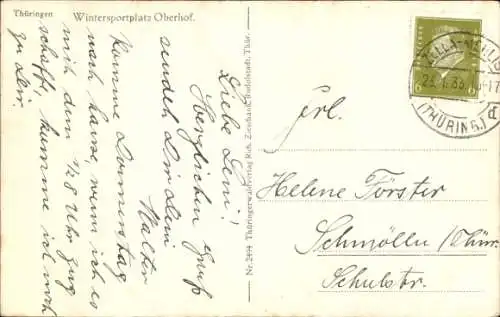 Thüringen Wintersportplatz Oberhof.
Liebe Leni!
Herzlichen Gruß
sendet Dir Dein
Walter
Komme Donnerstag
nach hause, wenn ich es
mit dem 1/2 8 Uhr Zug
schaffe, komme ich noch
zu Dir.
Nr. 2494 Thüringerwaldverlag Rich. Zieschank, Rudolstadt, Thür.
ZELLA-MEHLIS
(THÜRING.)
d
6 6
Frl.
Helene Förster
Schmölln/Thür.
Schulstr.